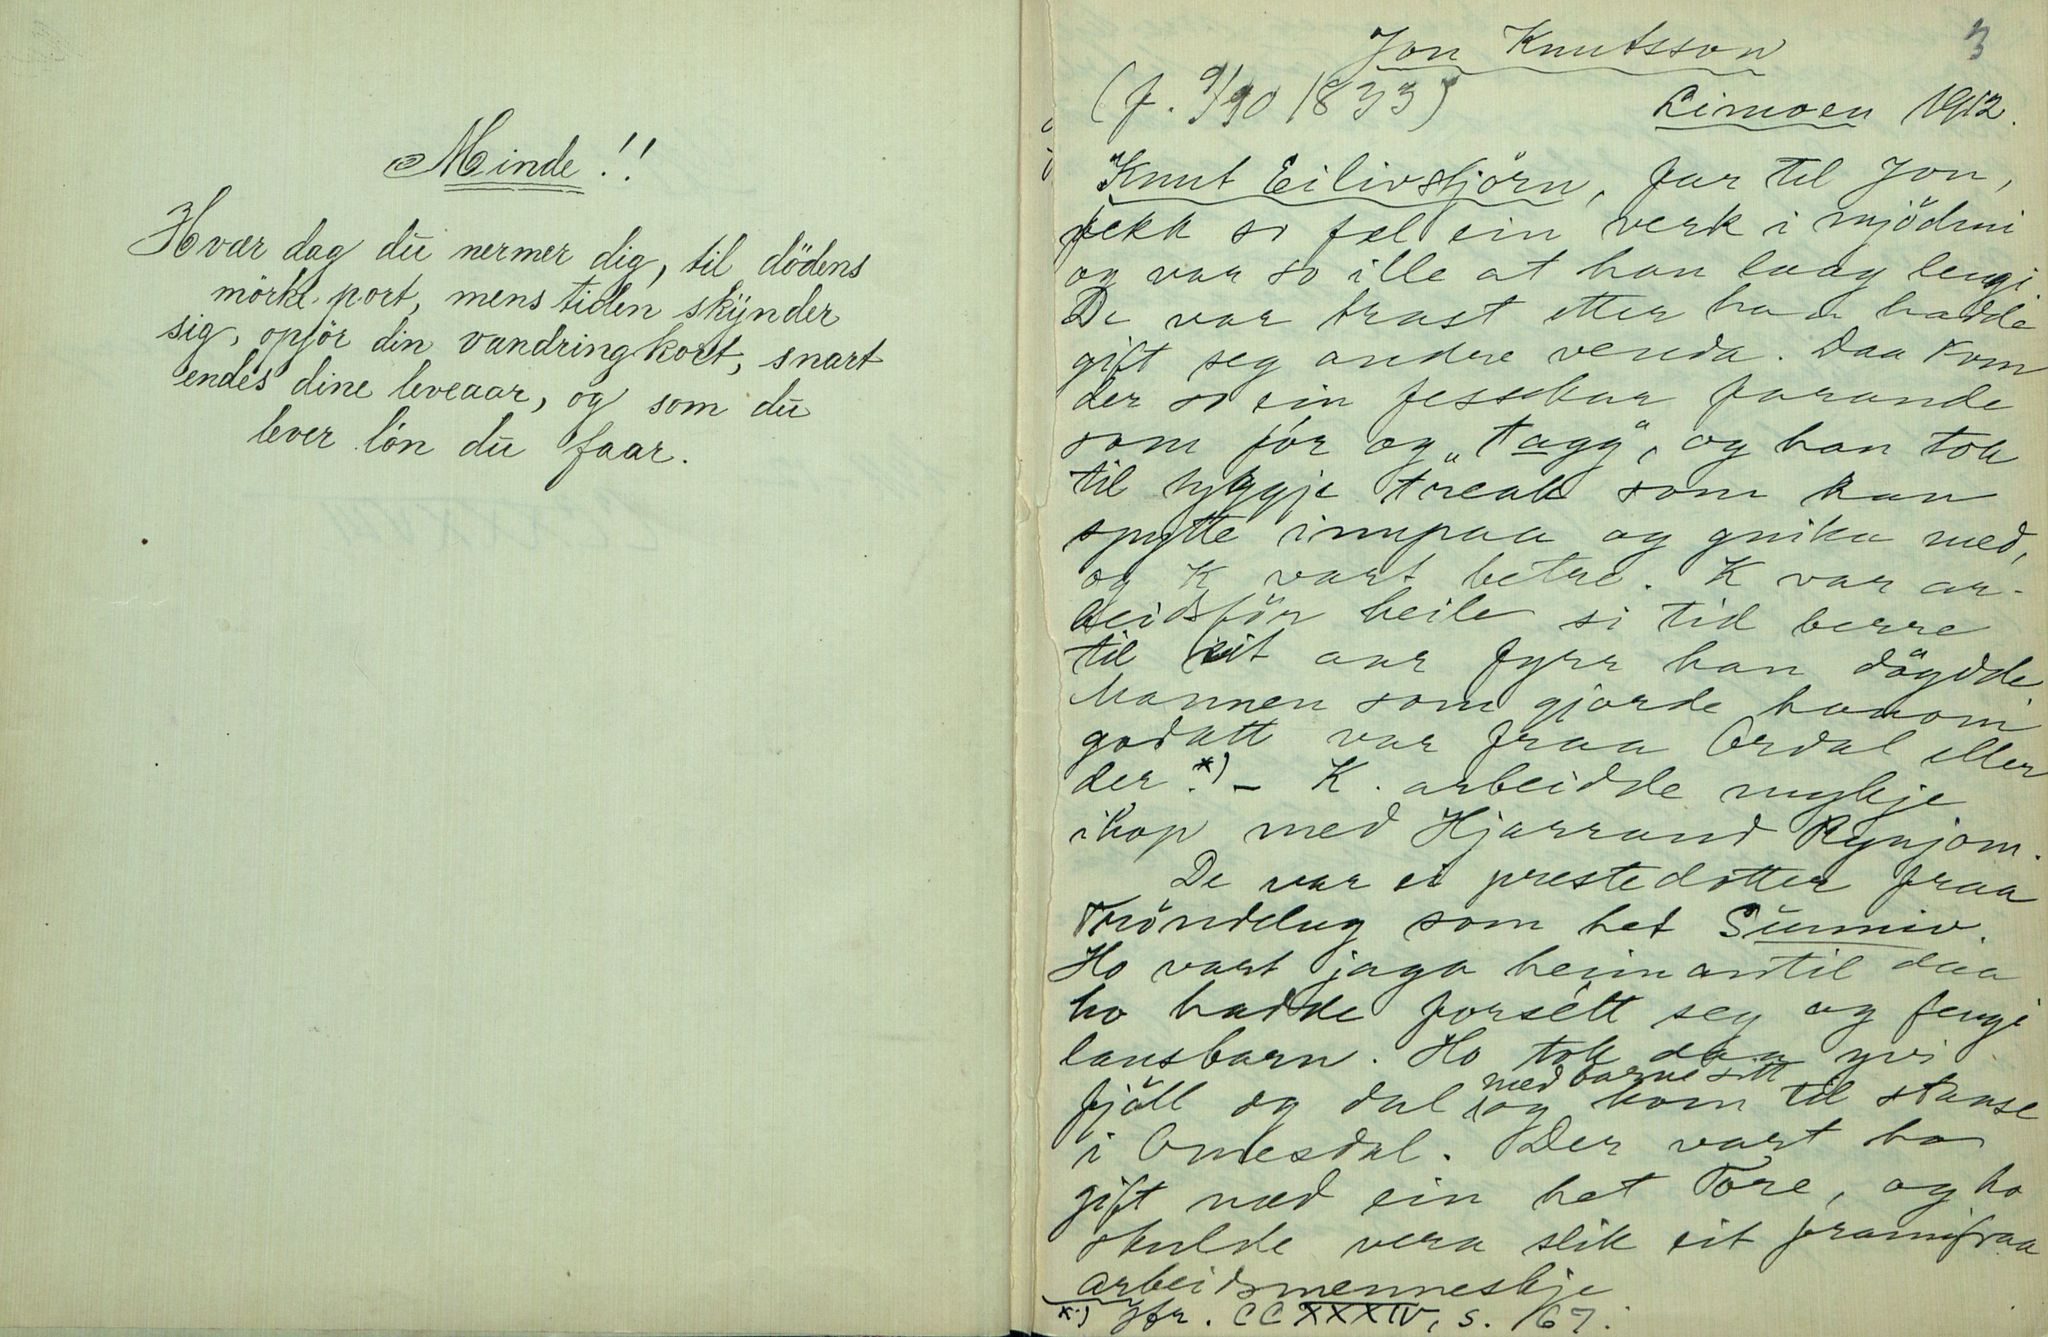 Minde!!
Hvær dag dü nermer dig, til dödens
mörke port, mens tiden skÿnder
sig, opför din vandring kort, snart
endes dine leveaar, og som dü
lever lön dü faar.
3
Jon Knutsson
(f. 9/90 1833)
Limoen 1912.
Knut Eilivstjörn, far til Jon,
fekk so fæl ein verk i mjödmi
og var so ille at han laag lengi
De var trast etter han hadde
gift seg andre venda. Daa kom
der so ein fesskar farande
som fór og "tagg", og han tok
til tyggje treak som han
spytte innpaa og gnika med,
og K vart betre. K var ar-
beidsför heile si tid berre
til eit aar fyrr han döydde
Mannen som gjorde honom
godatt var fraa Ordal eller
der.*) - K. arbeidde mykje
ihop med Hjarrand Rynjom.
De var ei prestedotter fraa
Tröndelag som het Sunniv.
Ho vart jaga heimantil daa
ho hadde forsétt seg og fengi
lausbarn. Ho tok daa yvi
med barne sitt
fjöll og dal og kom til stanse
i Omesdal. Der vart ho
gift med ein het Tore, og ho
skulde vera slik eit framifraa
arbeidsmenneskje
*) Jfr. CCXXXIV, s. 167.